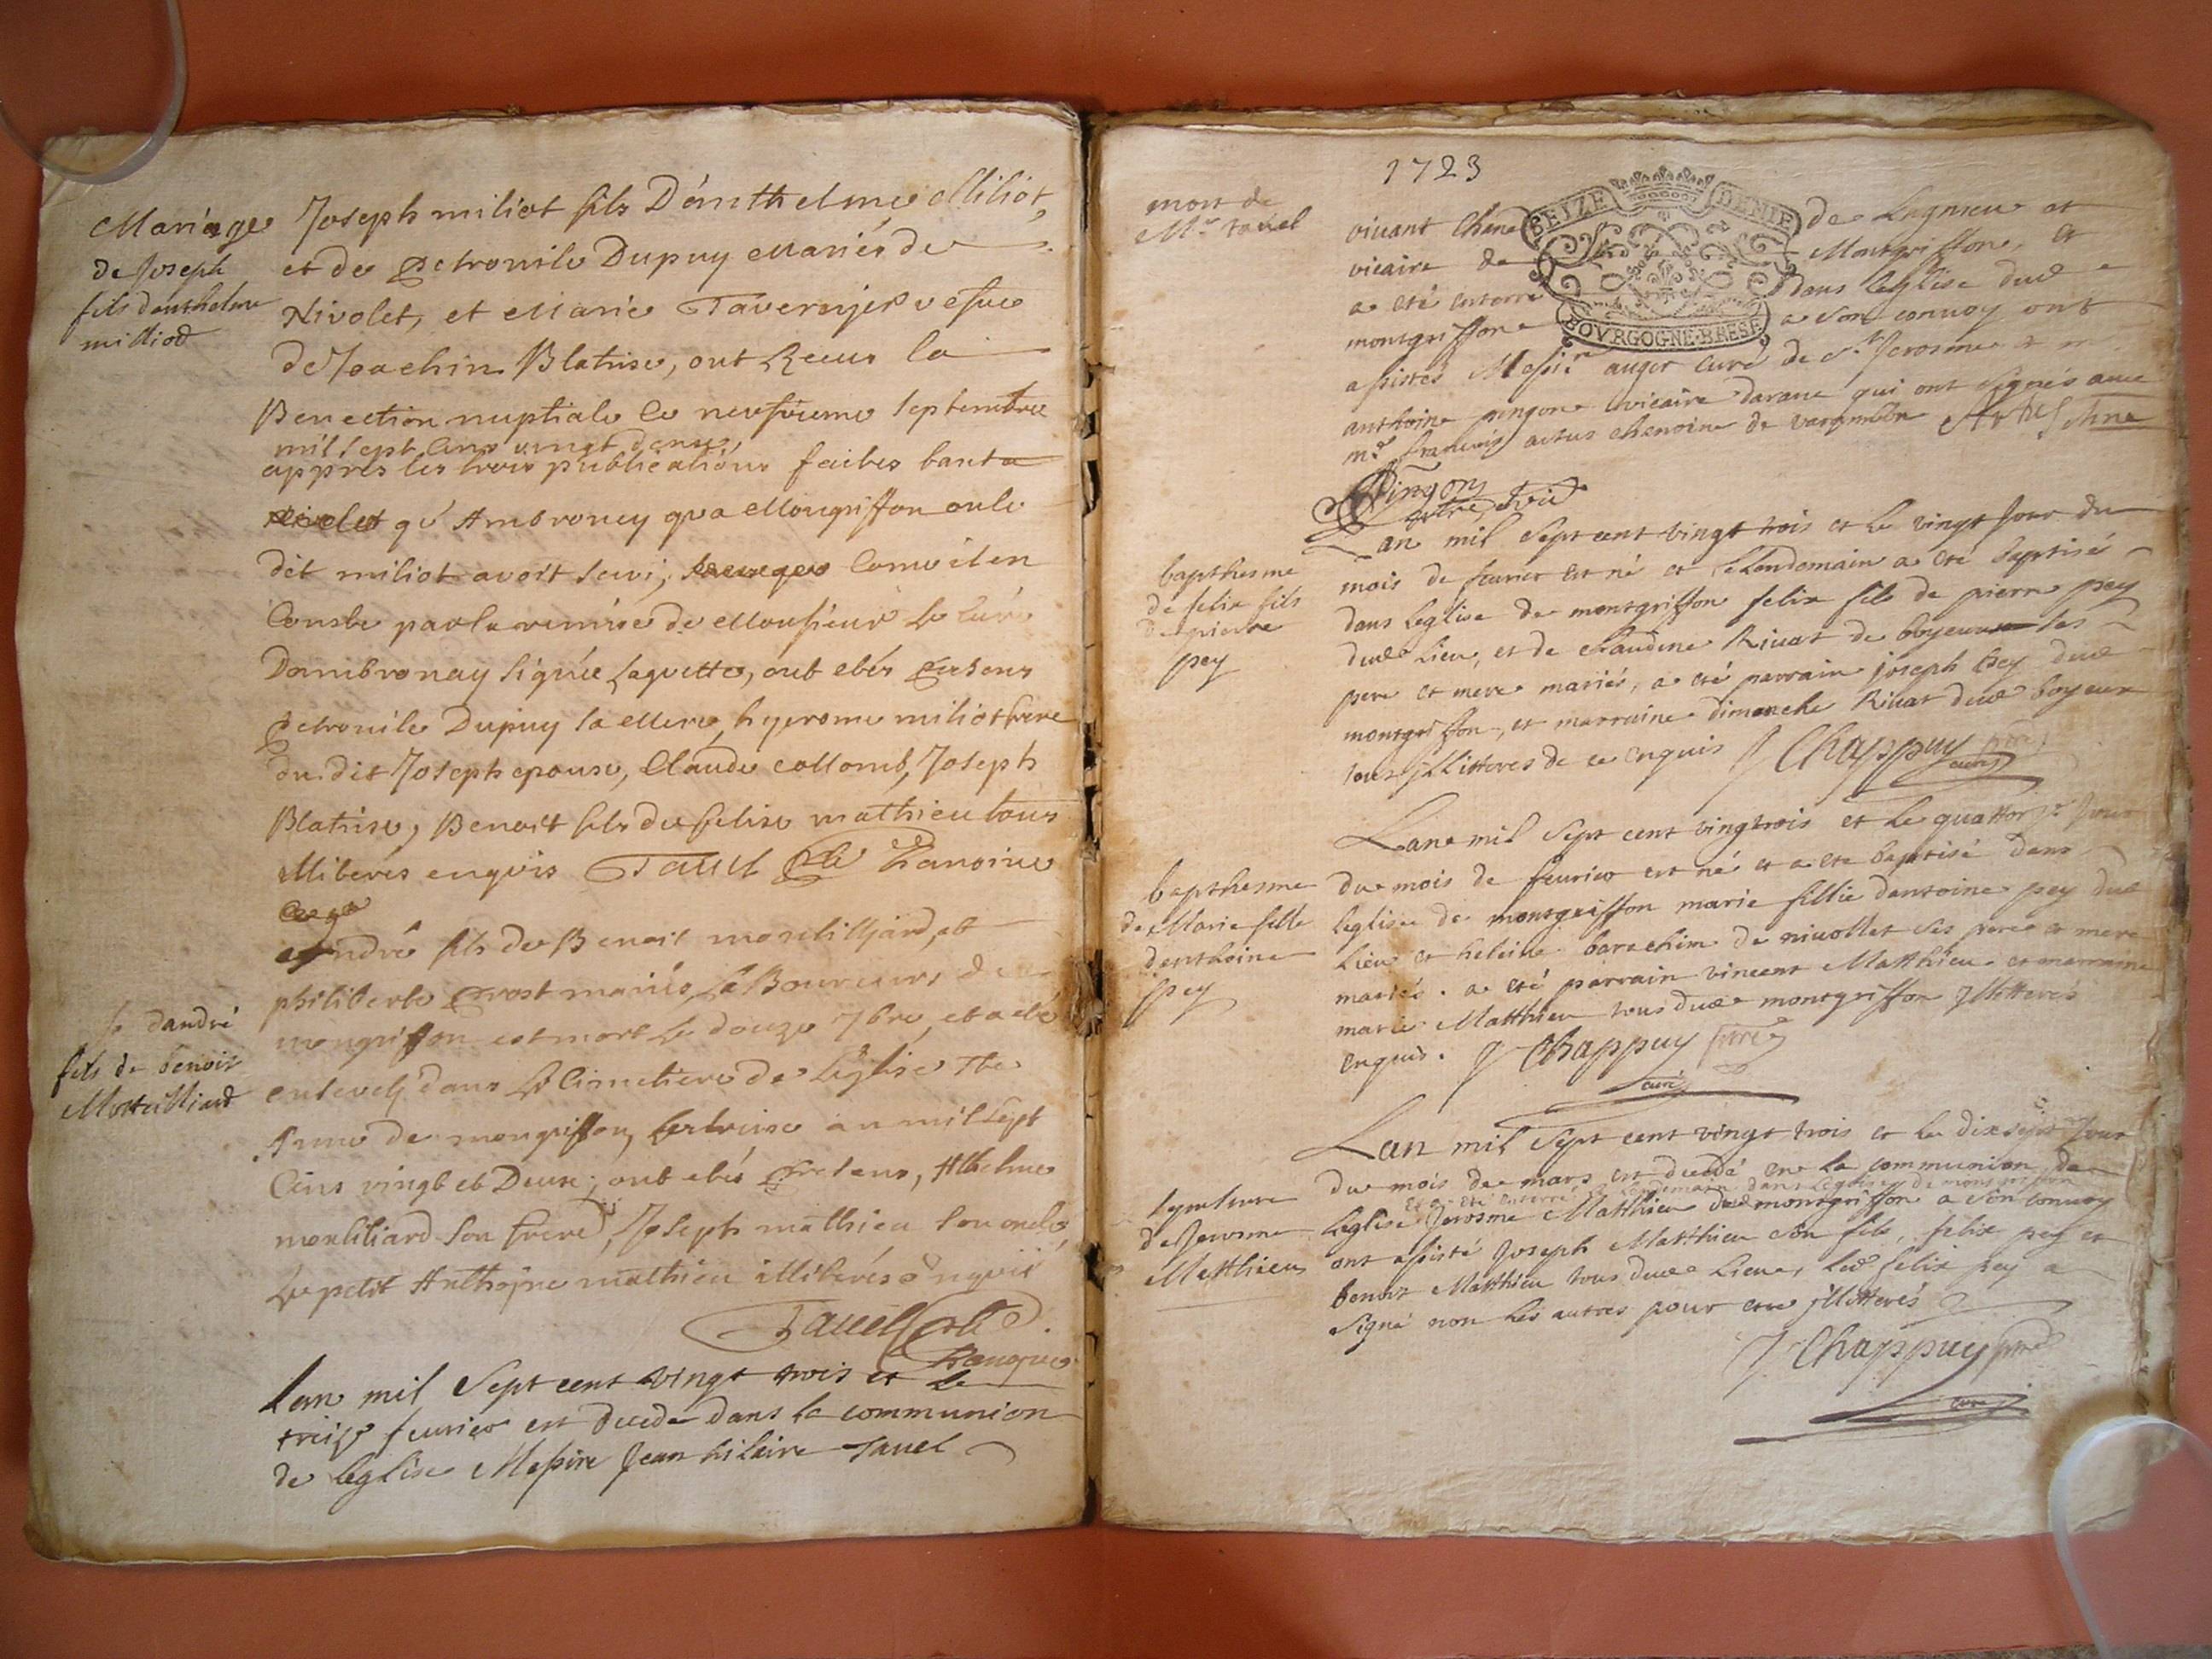 Mariage
de Joseph
fils danthelme
milliod
Joseph miliot fils D'émthelme Miliot,
et de petronile Dupuy Mariés de
Nivolet, et Marie Tavernjer vefue
de Joachin Blatrise, ont Receus la
Benection nuptiale le neufvieme septembre
mil sept Cens vingt deux,
appres les trois publications faites tant a
qu'Ambroney qua Mongriffon oule
dit miliot avoit servi, Come il en
Conste par la remise de Monsieur le Curé
Dambronay signée, ont etés presens
petronile Dupuy la Mere, hyerome miliot frere
du dit Joseph epoux, Claude collomb, Joseph
Blatrise, Benoit fils de felise mathieu tous
illiterés enquis Tavel
dandré
fils de benoit
Morteilliard
andré fils de Benoit morteilljard, et
philiberte prost mariés, de
mongriffon est mort le douze 7bre, et a eté
ensevelj dans le Cimetiere de l'église Ste
Anne de mongriffon, mil sept
Cens vingt et Deux; ont etés presens, Athelme
morteliard son frere, Joseph mathieu son oncle,
Le petit Anthojne mathieu illiterés enquis
Tavel
Lan mil Sept cent vingt trois et le
treize feurier est decede dans la communion
de leglise Messire Jean hilaire Tavel
1723
mort de
Mr. tavel
SEIZE DENIE
BOVRGOGNE·BRESE
viuant Chano de Lagnieu et
vicaire de Montgriffon, et
a été enterré dans leglise dud
montgriffon a son conuoy ont
assistés Messire auger curé de St. Jerosme
anthoine pingon vicaire darane qui ont signés auec
mr francois artus chanoine de varambon
Pingon
baptesme
de felix fils
de pierre
pey
Lan mil Sept cent vingt trois et le vingt jour du
mois de feurier est né et Lendemain a été baptisé
dans leglise de montgriffon felix fils de pierre pey
dud Lieu, et de claudine Riuat de boyeux ses
pere et mere mariés, a été parrain joseph pey dud
montgriffon, et marraine dimanche Riuat dud boyeux
tous jllitteres de ce enquis J Chappuy ptre
curé
bapthesme
de Marie fille
d'enthoine
pey
Lan mil Sept cent vingtrois et le quattorze Jour
du mois de feurier est né et a ete baptisé dans
leglise de montgriffon marie fillie dantoine pey dud
Lieu et heleine barachin de niuollet ses pere et mere
mariés. a été parrain vincent Matthieu et marraine
marie Matthieu tous dud montgriffon Jllitterés
enquis. J Chappuy ptre
curé
sepulture
de Jerosme
Matthieu
Lan mil Sept cent vingt trois et le dixsept Jour
du mois de mars est decedé en la communion de
et a été enterré le Lendemain dans leglise de montgriffon
Leglise Jerosme Matthieu dud montgriffon a son conuoy
ont assisté Joseph Matthieu son fils, felix pey et
benoit Matthieu tous dud Lieu, Led felix pey a
signé non les autres pour etre jllitterés
J Chappuy ptre
curé